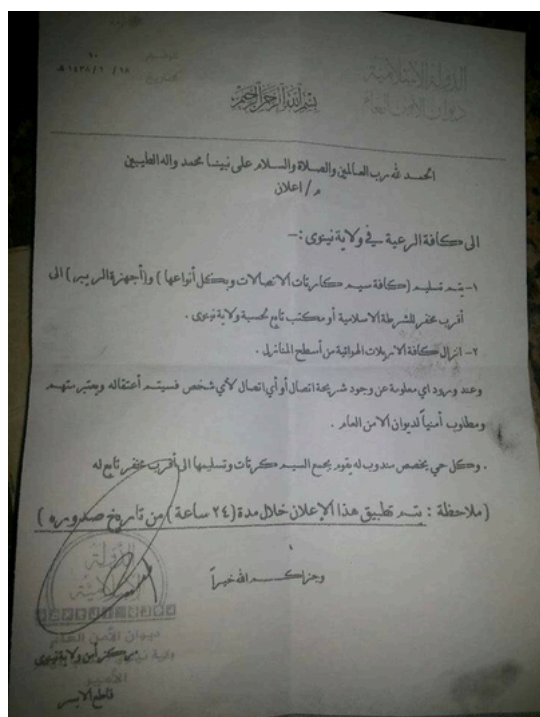 الدولة الإسلامية
ديوان الأمن العام
بسم الله الرحمن الرحيم
الرقم ٦٠
التاريخ ١٨ / ١ / ١٤٣٨ هـ
الحمد لله رب العالمين والصلاة والسلام على نبينا محمد واله الطيبين
م / اعلان
الى كافة الرعية في ولاية نينوى :-
١- يتم تسليم (كافة سيم كارتات الاتصالات وبكل أنواعها ) و(أجهزة الريبر ) الى
أقرب مخفر للشرطة الاسلامية أو مكتب تابع لحسبة ولاية نينوى .
٢- انزال كافة الاريلات الهوائية من أسطح المنازل .
وعند ورود اي معلومة عن وجود شريحة اتصال أو أي اتصال لأي شخص فسيتم أعتقاله ويعتبر متهم
ومطلوب أمنياً لديوان الامن العام .
. وكل حي يخصص مندوب له يقوم بجمع السيم كرتات وتسليمها الى أقرب مخفر تابع له
( ملاحظة : يتم تطبيق هذا الإعلان خلال مدة (٢٤ ساعة ) من تاريخ صدوره )
وجزاكم الله خيراً
الدولة
الإسلامية
ديوان الأمن العام
ولاية نينوى
مركز أمن ولاية نينوى
الأمير
قاطع الايسر